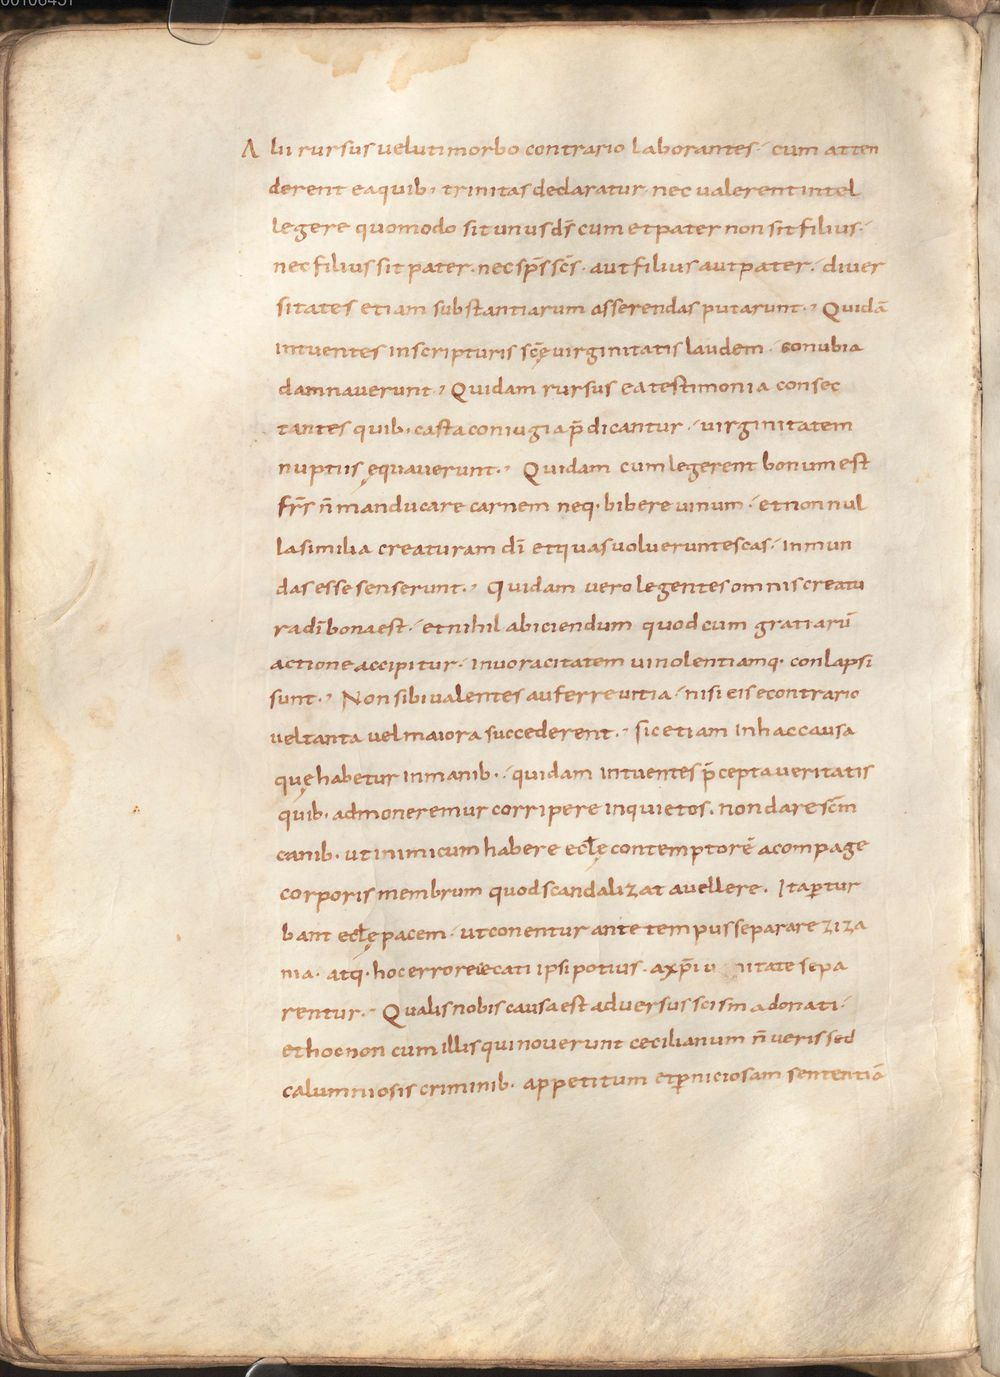 00106451
Alii rursus velutimorbo contrario laborantes· cum atten
derent eaquib· trinitas declaratur· nec valerent intel
legere quomodo sit unus ds̄ cum et pater non sit filius·
nec filius sit pater· nec sps̄ scs̄· aut filius aut pater· diver
sitates etiam substantiarum asserendas putarunt· Quidā
intuentes in scripturis scę̄ virginitatis laudem· conubia
damnaverunt· Quidam rursus ea testimonia consec
tantes quib· casta coniugia p̄dicantur· virginitatem
nuptiis ęquaverunt· Quidam cum legerent bonum est
frs̄ n̄ manducare carnem neq· bibere vinum· et non nul
la similia creaturam dī et quas voluerunt escas· inmun
das esse senserunt· Quidam vero legentes omnis creatu
ra dī bona est· et nihil abiciendum quod cum gratiarū
actione accipitur· in voracitatem vinolentiamq· conlapsi
sunt· Non sibi valentes auferre vitia· nisi eis econtrario
vel tanta vel maiora succederent· sic etiam in hac causa
quę habetur in manib· quidam intuentes p̄cepta veritatis
quib· admoneremur corripere inquietos· non dare scm̄
canib· ut inimicum habere eccłę contemptorē a compage
corporis membrum quod scandalizat avellere· Ita ꝑtur
bant eccłę pacem· ut conentur ante tempus separare ziza
nia· atq· hoc errore cecati ipsi potius· a xp̄i unitate sepa
rentur· Qualis nobis causa est adversus scisma donati·
et hoc non cum illis qui noverunt cecilianum n̄ veris sed
calumniosis criminib· appetitum et ꝑniciosam sententiā